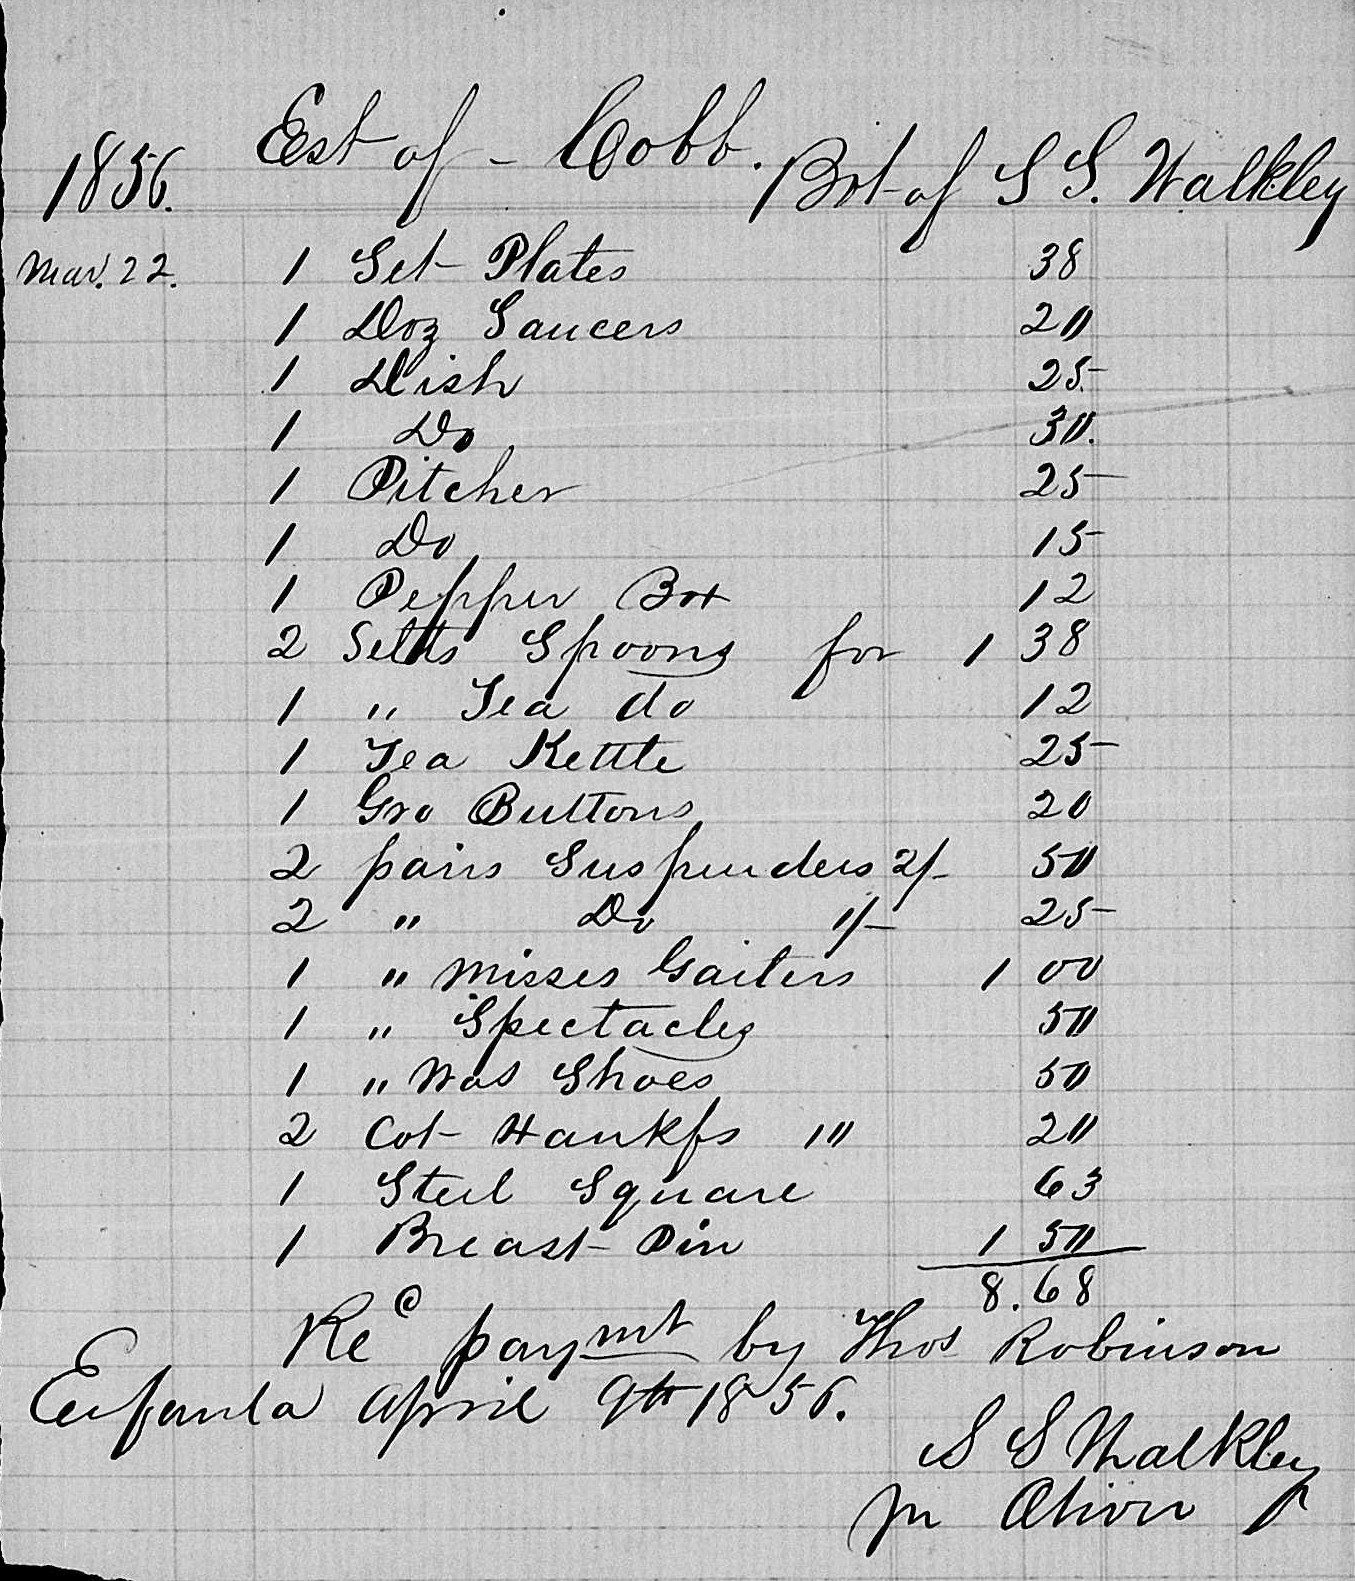 Est of - Cobb.
1856. Bot of S S. Walkley
Mar. 22. 1 Set Plates 38
1 Doz Saucers 20
1 Dish 25
1 Do 30.
1 Pitcher 25
1 Do 15
1 Pepper Box 12
2 Setts Spoons for 1 38
1 " Tea do 12
1 Tea Kettle 25
1 Gro Buttons 20
2 pairs Suspenders 2/- 50
2 " Do 1/- 25
1 " Misses Gaiters 1 00
1 " Spectacles 50
1 " Shoes 50
2 Cot Hankfs 10 20
1 Steel Square 63
1 Breast Pin 1 50
8.68
Rec paymt by Thos Robinson
Eufaula April 9th 1856.
S S Walkley